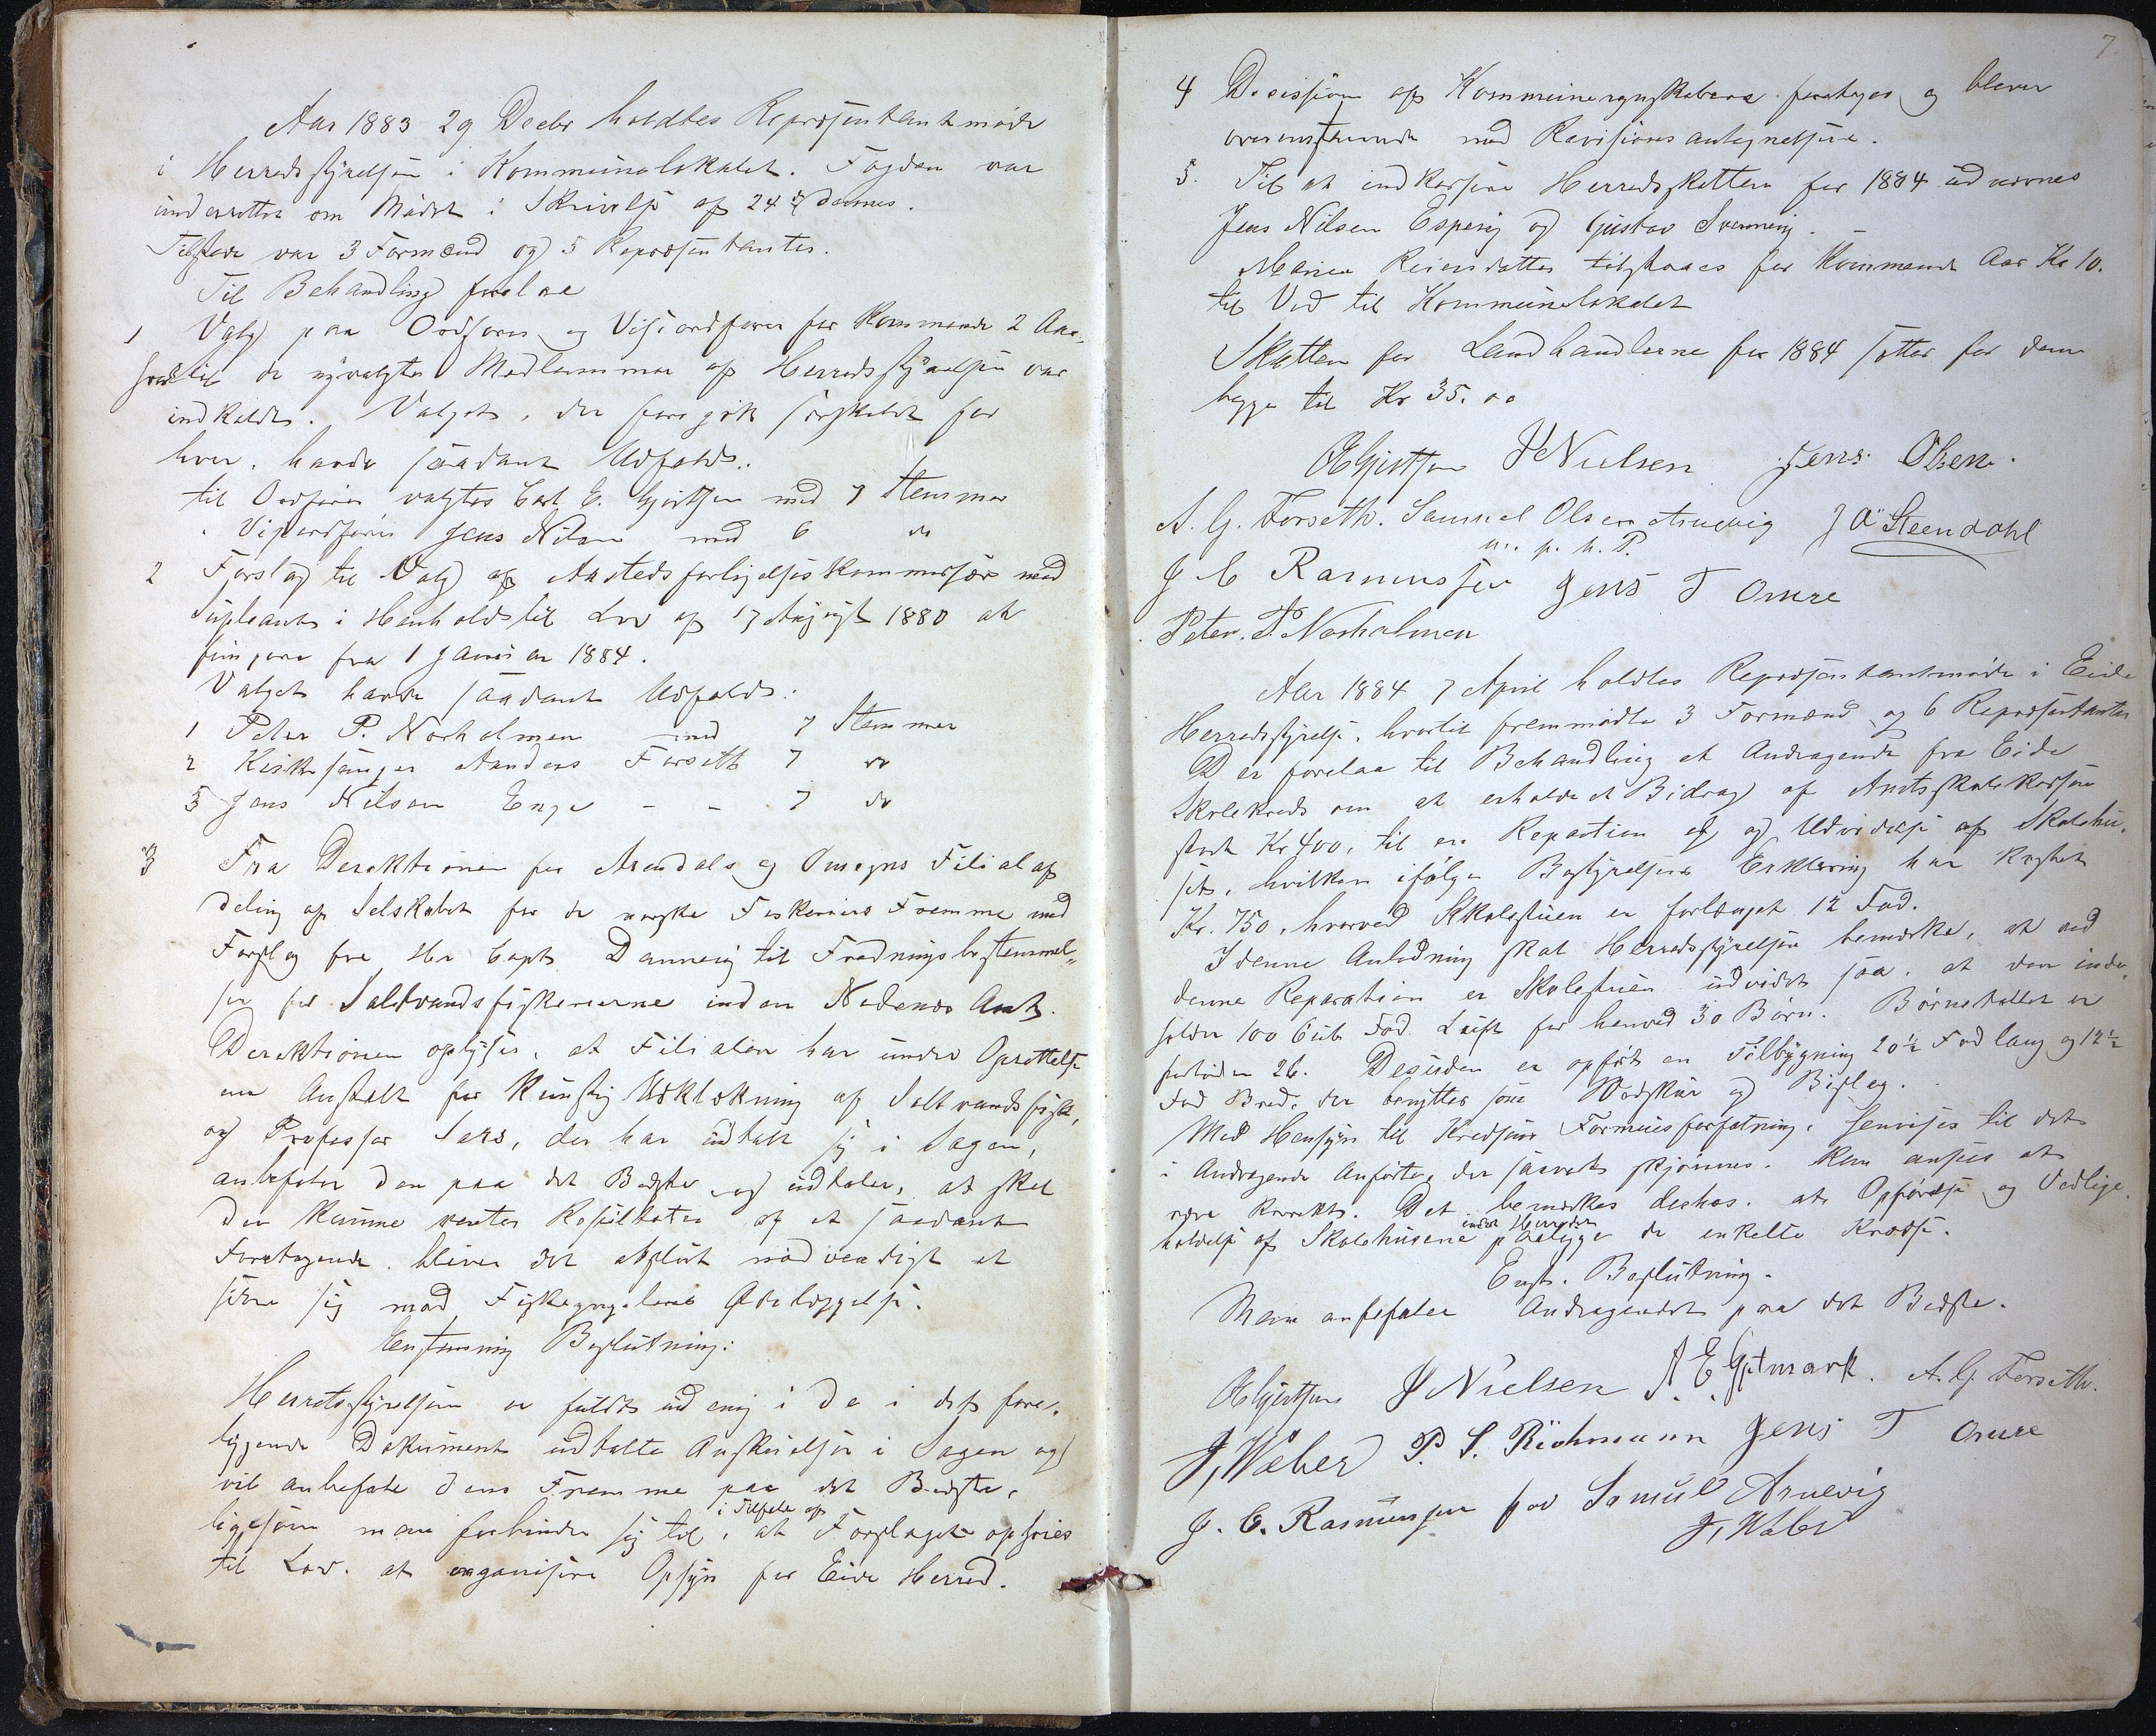 Aar 1883 29 Decbr holdtes Repræsentantmøde
i Herredsstyrelsen i Kommunelokalet. Fogden var
underrettet om Mødet i Skrivelse af 24 ds.
Tilstede var 3 Formænd og 5 Repræsentanter.
Til Behandling forelaa
1 Valg paa Ordfører og Viseordfører for kommende 2 Aar,
hvortil de nyvalgte Medlemmer af Herredsstyrelsen var
indkaldt. Valget, der foregik særskildt for
hver, havde saadant Udfald:
til Ordfører valgtes Carl E. Gjertsen med 7 Stemmer
" Viseordfører Jens Nilsen med 6 do
2 Forslag til Valg af Aastedsforligelseskommissær med
Supleant i Henhold til Lov af 17 August 1880 at
fungere fra 1 Januar 1884.
Valget havde saadant Udfald:
1 Peter P. Norholmen med 7 Stemmer
2 Kirkesanger Anders Forseth 7 do
3 Jens Nilsen Enge - - 7 do
3 Fra Derektionen for Arendals og Omegns Filialaf
deling af Selskabet for de norske Fiskeriers Fremme med
Forslag fra Hr Capt. Dannevig til Fredningsbestemmel-
ser for Saltvandsfiskerierne inden Nedenes Amt.
Derektionen oplyser, at Filialen har under Oprettelse
en Anstalt for kunstig Udklækning af Saltvandsfisk,
og Professor Sars, der har udtalt sig i Sagen,
anbefaler den paa det Bedste og udtaler, at skal
der kunne ventes Resultater af et saadant
Foretagende, bliver det absolut nødvendigt at
sikre sig mod Fiskeyngelens Ødelæggelse.
Eenstemmig Beslutning:
Herredsstyrelsen er fuldt ud enig i de i det fore-
liggende Dokument udtalte Anskuelser i Sagen og
vil anbefale dens Fremme paa det Bedste,
ligesom man forbinder sig til, i Tilfælde af at Forslaget ophøies
til Lov, at organisere Opsyn for Eide Herred.
7.
4 Decission af Kommuneregnskaberne foretoges og blever
overenstemmende med Revisions antegnelserne.
5. Til at indkassere Herredsskatten for 1884 udnævnes
Jens Nilsen Espevig og Gustav Svenning.
Maren Reiersdatter tilstaaes for kommende Aar Kr 10.
til Ved til Kommunelokalet
Skatten for Landhandlerne for 1884 sættes for dem
begge til Kr 35.00
CEGjertsen JNielsen Jens Olsen.
A. G. Forseth. Samuel Olsen Arnevig J O Steendahl
m. p. h. P.
J C Rasmussen Jens T Omre
Peter. P. Norholmen
Aar 1884 7 April holdtes Repræsentantmøde i Eide
Herredsstyrelse, hvortil fremmødte 3 Formænd og 6 Repræsentanter
Der forelaa til Behandling et Andragende fra Eide
Skolekreds om at erholde et Bidrag af Amtsskolekassen
stort Kr 400, til en Reparation af og Udvidelse af Skolehu-
set, hvilken ifølge Bestyrelsens Erklæring har kostet
Kr. 750, hvorved Skolestuen er forlænget 12 Fod.
I denne Anledning skal Herredsstyrelsen bemærke, at ved
denne Reparation er Skolestuen udvidet saa, at den inde-
holder 100 Cub. Fod Luft for henved 30 Børn. Børnetallet er
fortiden 26. Desuden er opført en Tilbygning 20½ Fod lang og 12½
Fod Bred, der benyttes som Vedskur og Bislag.
Med Hensyn til Kredsens Formuesforfatning, henvises til det
i Andragende Anførte, der saavidt skjønnes, kan ansees at
være korrekt. Det bemærkes derhos, at Opførelse og Vedlige-
holdelse af Skolehusene inden Herredet paaligger de enkelte Kredse.
Enst. Beslutning.
Man anbefaler Andragendet paa det Bedste.
CEGjertsen J Nielsen A. G. Forseth.
J, Weber P. S. Richmann Jens T Omre
J. C. Rasmussen for Samuel Arnevig
J, Weber